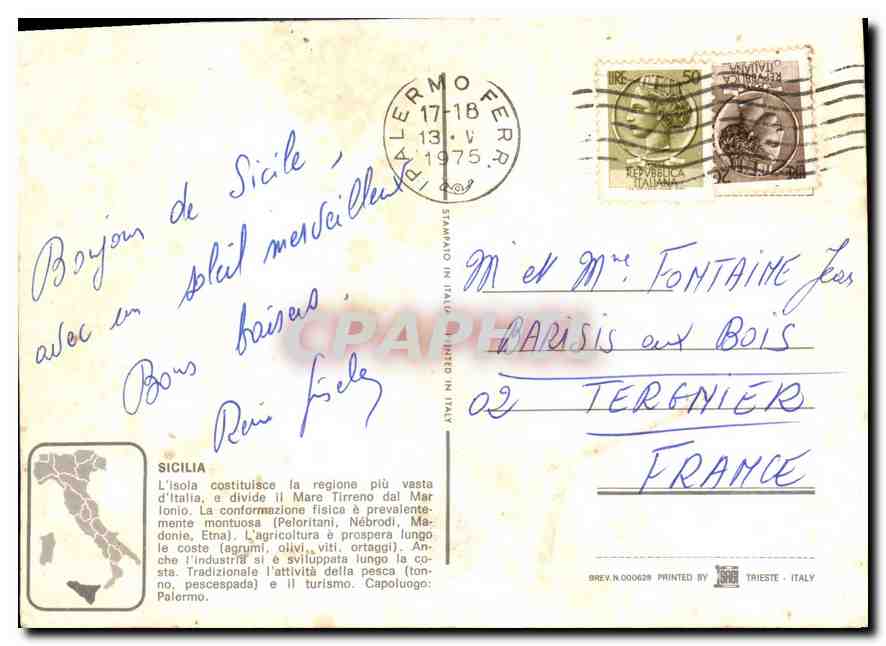 PALERMO FERR.
17-18
13 · V
1975
LIRE 50
REPVBBLICA
ITALIANA
REPVBBLICA
ITALIANA
Bonjour de Sicile,
avec un soleil merveilleux
Bons baisers.
René Gisèle
M et Mme FONTAINE Jean
BARISIS aux BOIS
02 TERGNIER
FRANCE
STAMPATO IN ITALIA PRINTED IN ITALY
CPAPHIL
SICILIA
L'isola costituisce la regione più vasta
d'Italia, e divide il Mare Tirreno dal Mar
Ionio. La conformazione fisica è prevalente-
mente montuosa (Peloritani, Nébrodi, Ma-
donie, Etna). L'agricoltura è prospera lungo
le coste (agrumi, olivi, viti, ortaggi). An-
che l'industria si è sviluppata lungo la co-
sta. Tradizionale l'attività della pesca (ton-
no, pescespada) e il turismo. Capoluogo:
Palermo.
BREV. N. 000628 PRINTED BY SAGI TRIESTE - ITALY